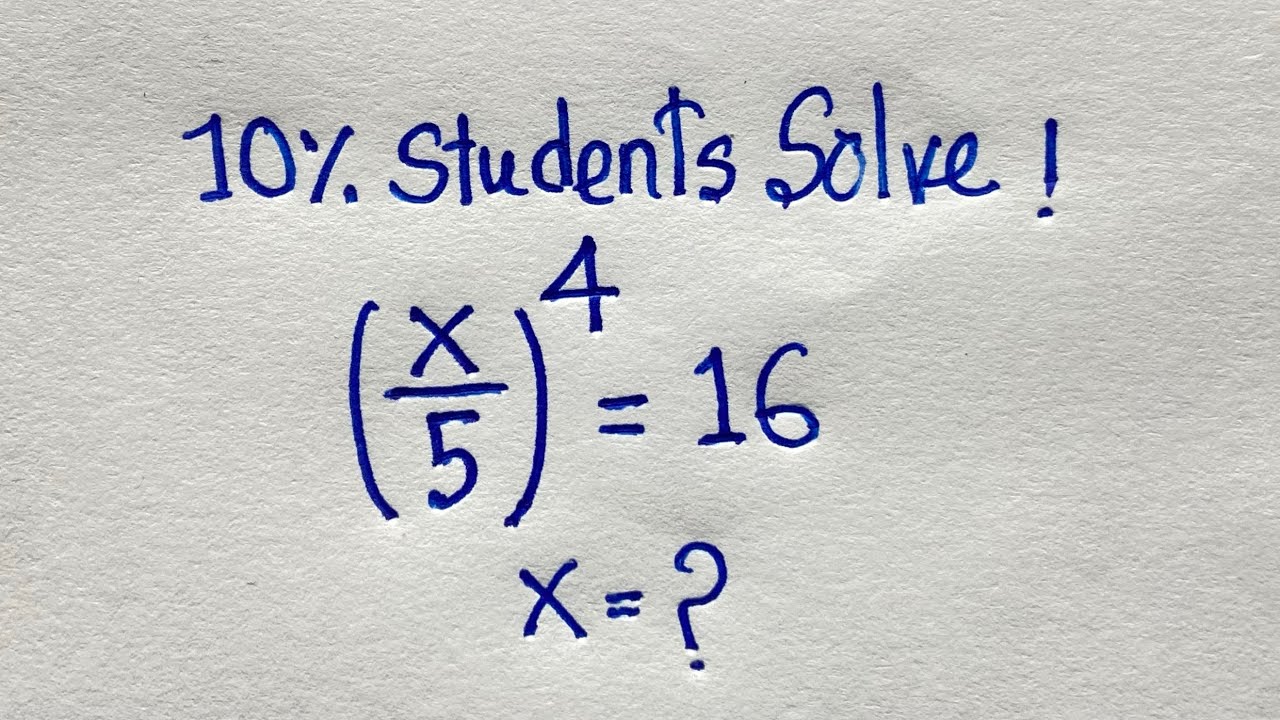 10% Students Solve !
(x/5)^4 = 16
x = ?